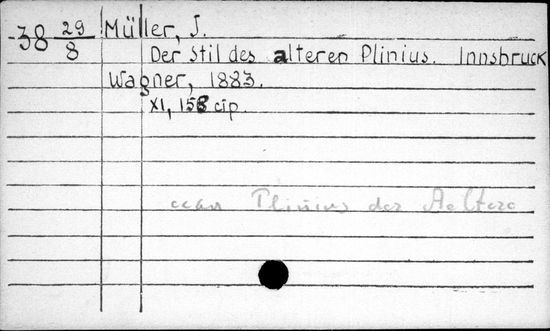 38 29/8 Müller, J.
Der Stil des älteren Plinius. Innsbruck
Wagner, 1883.
XI, 158 стр.
Plinius der Aeltere